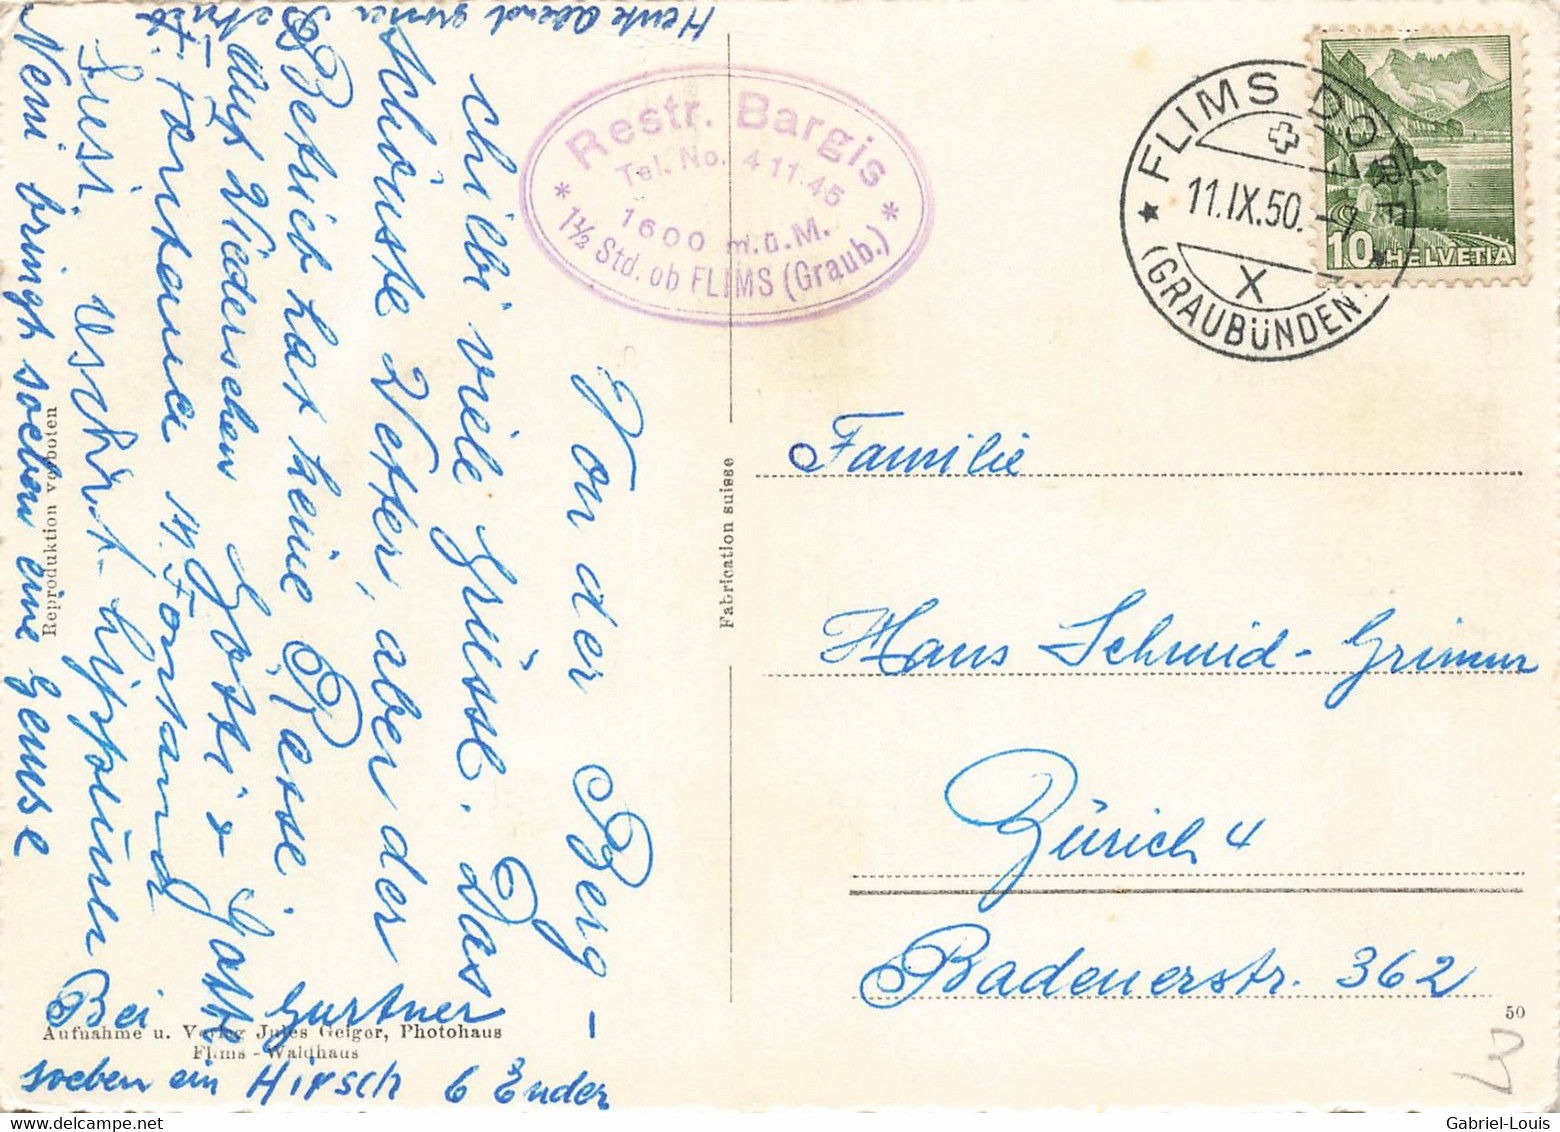 Von der Berg-
chilbi viele Grüsse. Das
schönste Wetter, aber der
Betrieb hat keine Rasse.
Auf Wiedersehen Götti & Gotte
F. Fontana M. Fontana
Heute Abend
Neni bringt soeben eine Gemse
Bei Gurtner
soeben ein Hirsch 6 Ender
Restr. Bargis
Tel. No. 4 11 45
1600 m.ü.M.
* 1½ Std. ob FLIMS (Graub.) *
FLIMS DORF
11.IX.50.
X
(GRAUBÜNDEN)
10 HELVETIA
Familie
Hans Schmid-Grimm
Zürich 4
Badenerstr. 362
Reproduktion verboten
Fabrication suisse
Aufnahme u. Verlag Jules Geiger, Photohaus
Flims - Waldhaus
50
3
Gabriel-Louis